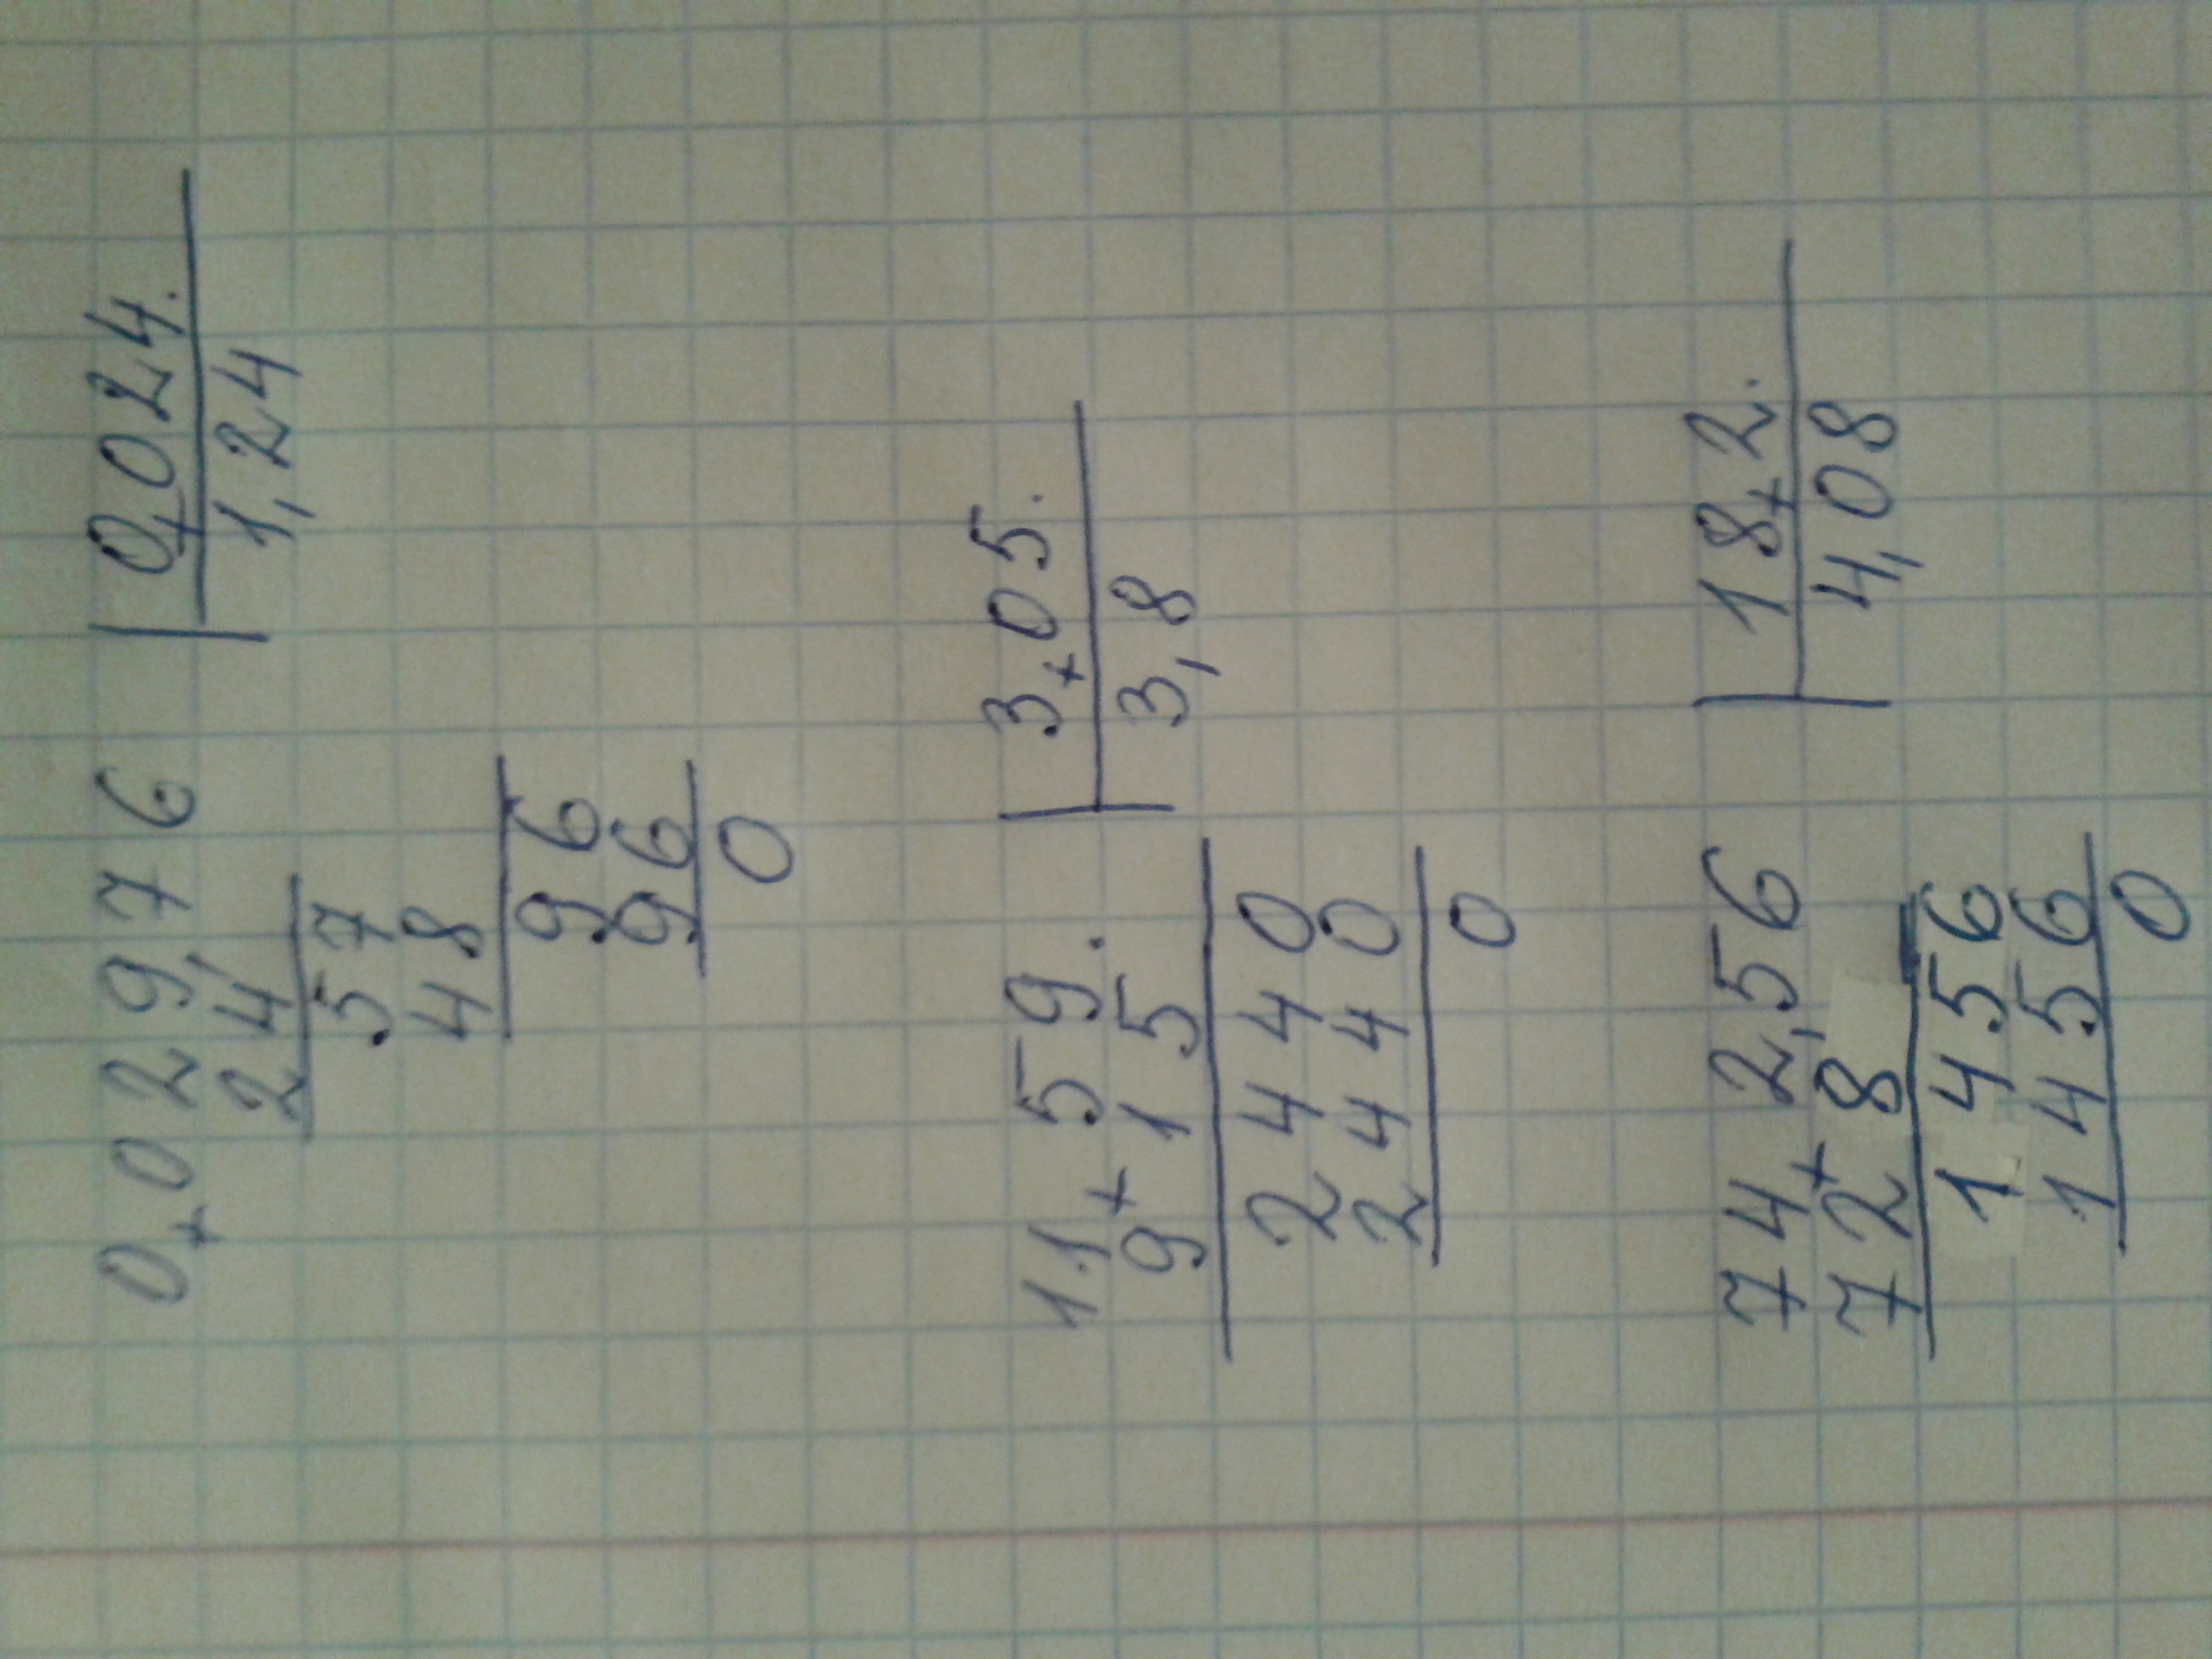 0,029,76 | 0,024.
24 1,24
57
48
96
96
0
11,59. | 3,05.
915 3,8
2440
2440
0
74,2,56 | 18,2.
728 4,08
1456
1456
0